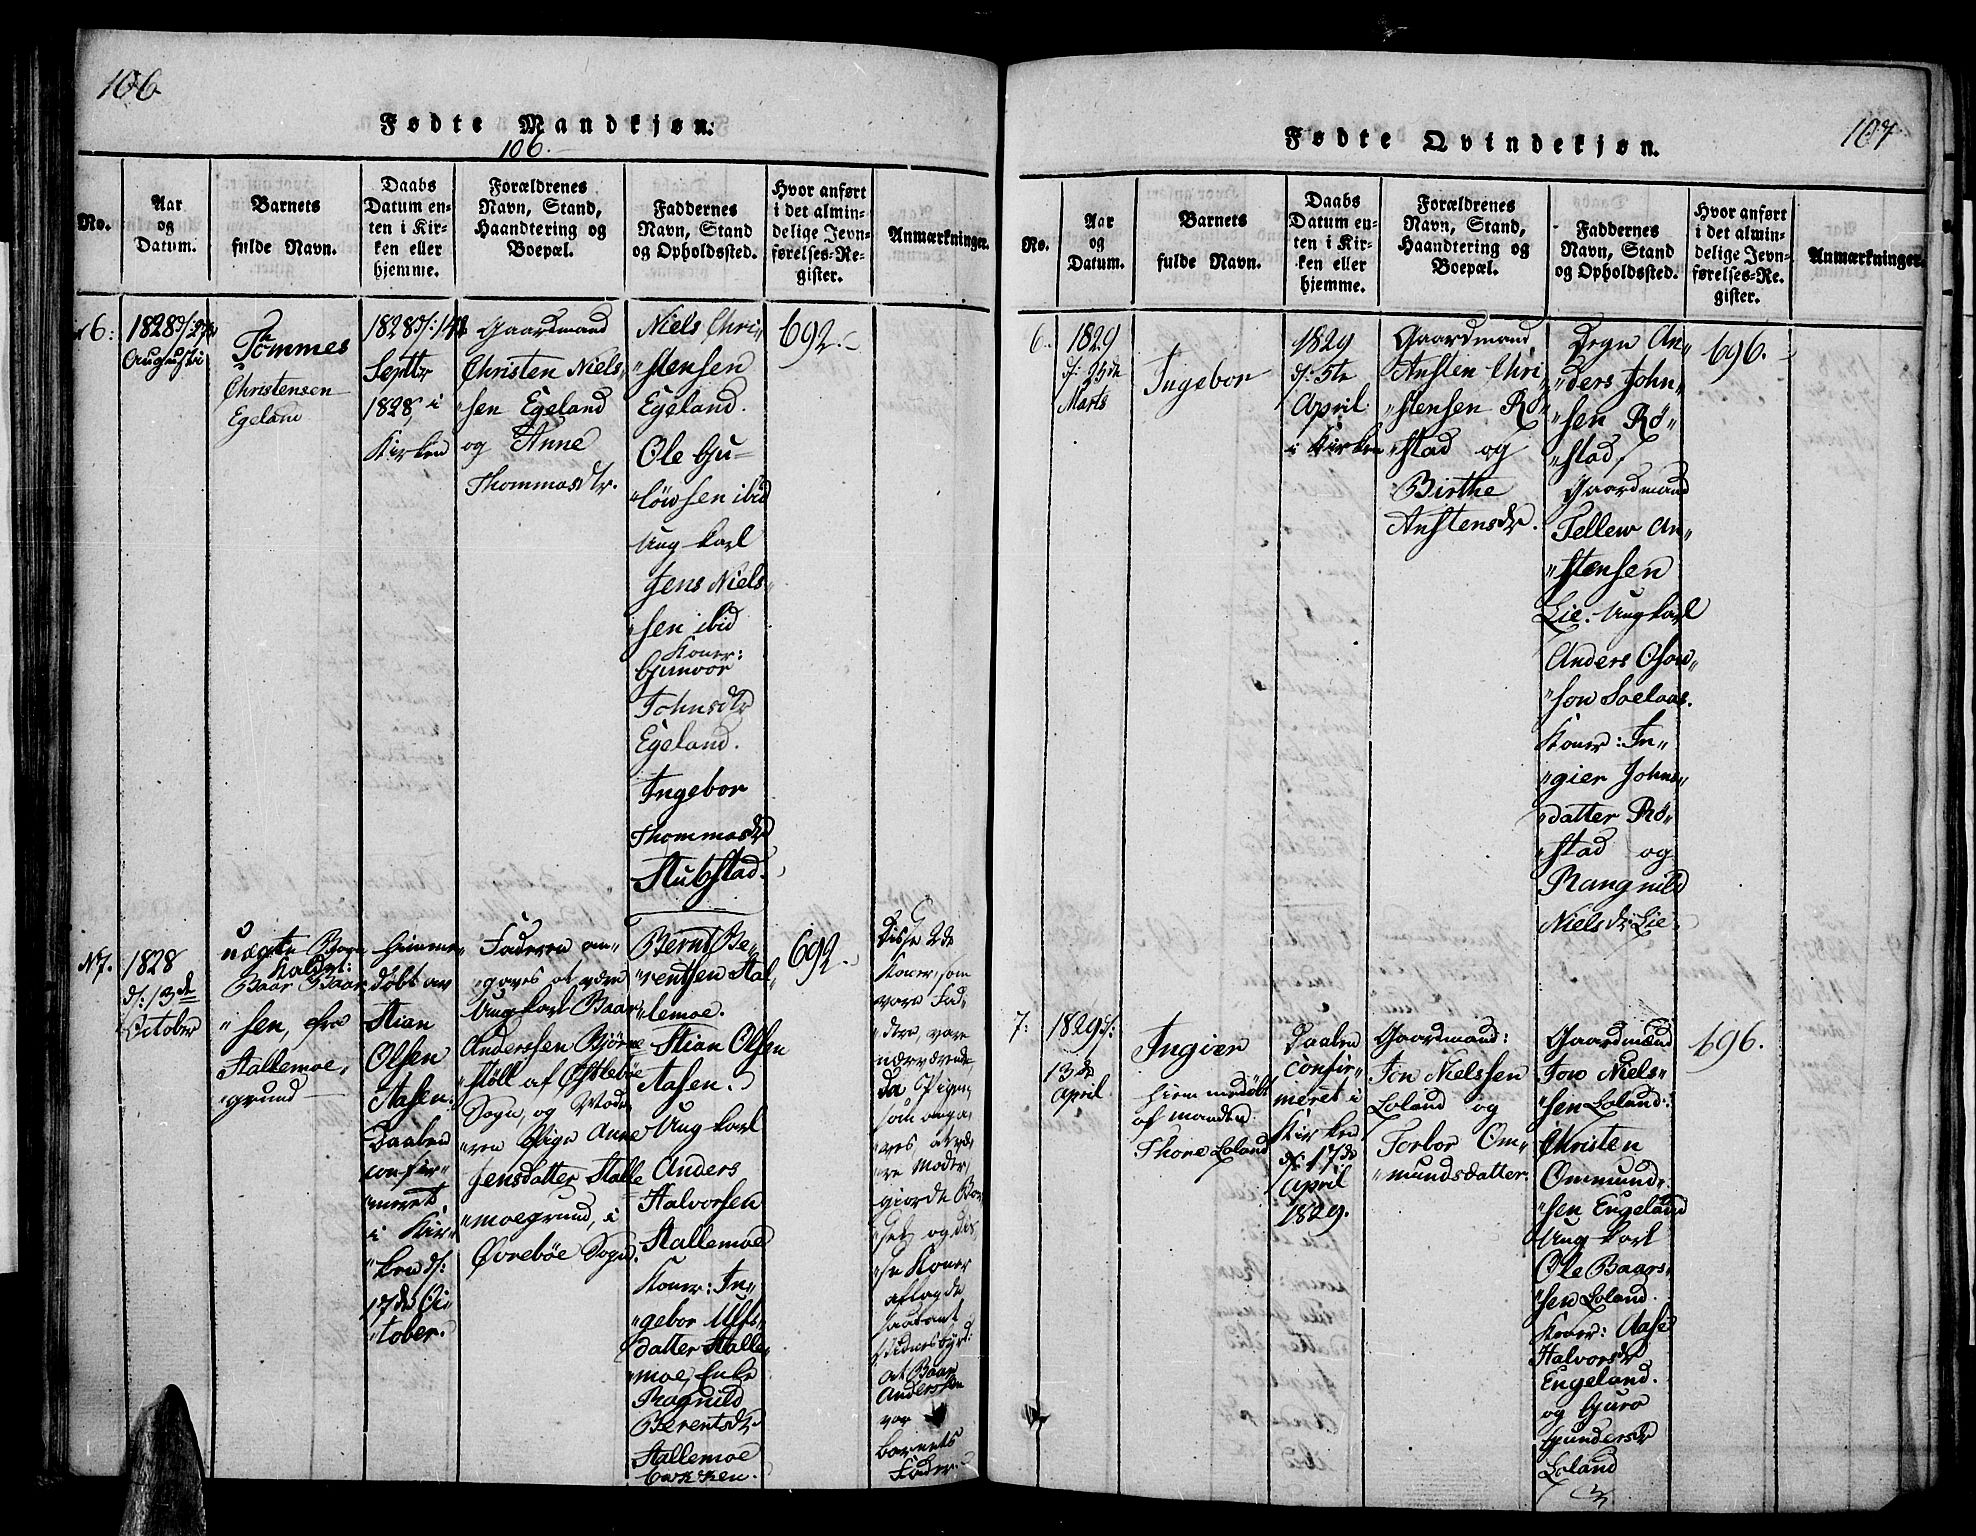 106
Fødte Mandkjøn.
106.
No.
Aar
og
Datum.
Barnets
fulde Navn.
Daabs
Datum en-
ten i Kir-
ken eller
hjemme.
Forældrenes
Navn, Stand,
Haandtering og
Boepæl.
Faddernes
Navn, Stand
og Opholdssted.
Hvor anført
i det almin-
delige Jevn-
førelses-Re-
gister.
Anmærkninger.
16:
1828 d: 27de
Augusti
Tommes
Christensen
Egeland
1828 d: 14de
Septbr
1828, i
Kirken
Gaardmand
Christen Niels„
„sen Egeland
og Anne
Thommasdtr.
Niels Chri„
„stensen
Egeland.
Ole Gu„
„lówsen ibid
Ung karl
Jens Niels„
„sen ibid
Koner:
Gunvor
Johnsdtr
Egeland.
Ingebor
Thommasdtr
Stubstad.
692.
N7.
1828
d: 13de
October
uægte
Kaldet:
Baar Baar
„sen, fra
Stallemoe„
grund
Hiemme„
døbt av
Stian
Olsen
Aasen.
Daaben
confir„
„meret
i Kir„
„ken d:
17de Oc„
„tober.
Faderen an„
„gaves at være
Ung karl Baar
Anderssen Bjørne
„støll af Østlebøe
Sogn, og Mode„
„ren Pige Anne
Jensdatter Stalle
„moegrund, i
Øvrebøe Sogn.
Bernt Be„
„rentsen Stal„
„lemoe.
Stian Olsen
Aasen.
Ung karl
Anders
Halvorsen
Stallemoe
Koner: In„
„gebor Ulfs„
datter Stalle„
„moe, Enke
Ragnild
Berentsdtr
Stallemoe
692.
Disse 2de
Koner, som
vare Fad„
„dre, vare
nærværende,
da Pigen,
som anga„
„ves at væ„
„re Moder,
giorde Bar„
„sel, og dis„
„se Koner
aflagde
saadant
Vidnesbyrd:
at Baar
Anderssen
var
barnets
Fader.
107
Fødte Qvindekjøn.
No.
Aar
og
Datum.
Barnets
fulde Navn.
Daabs
Datum en-
ten i Kir-
ken eller
hjemme.
Forældrenes
Navn, Stand,
Haandtering og
Boepæl.
Faddernes
Navn, Stand
og Opholdssted.
Hvor anført
i det almin-
delige Jevn-
førelses-Re-
gister.
Anmærkninger.
6.
1829
d: 25de
Marts
Ingebor
1829
d: 5te
April
i Kirken
Gaardmand
Ansten Chri„
„stensen Rø„
„stad og
Birthe
Anstensdtr.
Degn An„
„ders John„
„sen Rø„
„stad,
Gaardmand
Tellew An„
„stensen
Lie. Ung karl
Anders Osow„
„son Loelaas.
Koner: In„
„gier Johns„
„datter Rø„
„stad og
Rangnild
Nielsdtr Lie.
696.
7:
1829 d:
13de
April
Ingier
Hiemmedøbt
af manden
Thore Loland
Daaben
confir„
meret i
Kirken
d: 17de
April
1829.
Gaardmand:
Jon Nielssen
Loland og
Torbor Om„
„mundsdatter.
Gaardmænd
Jon Niels„
„sen Loland.
Christen
Ommund„
„sen Engeland
Ung karl
Ole Baars„
„sen Loland.
Koner: Aase
Halvorsdtr
Engeland.
og Guro
Gundersdtr
Loland
696.